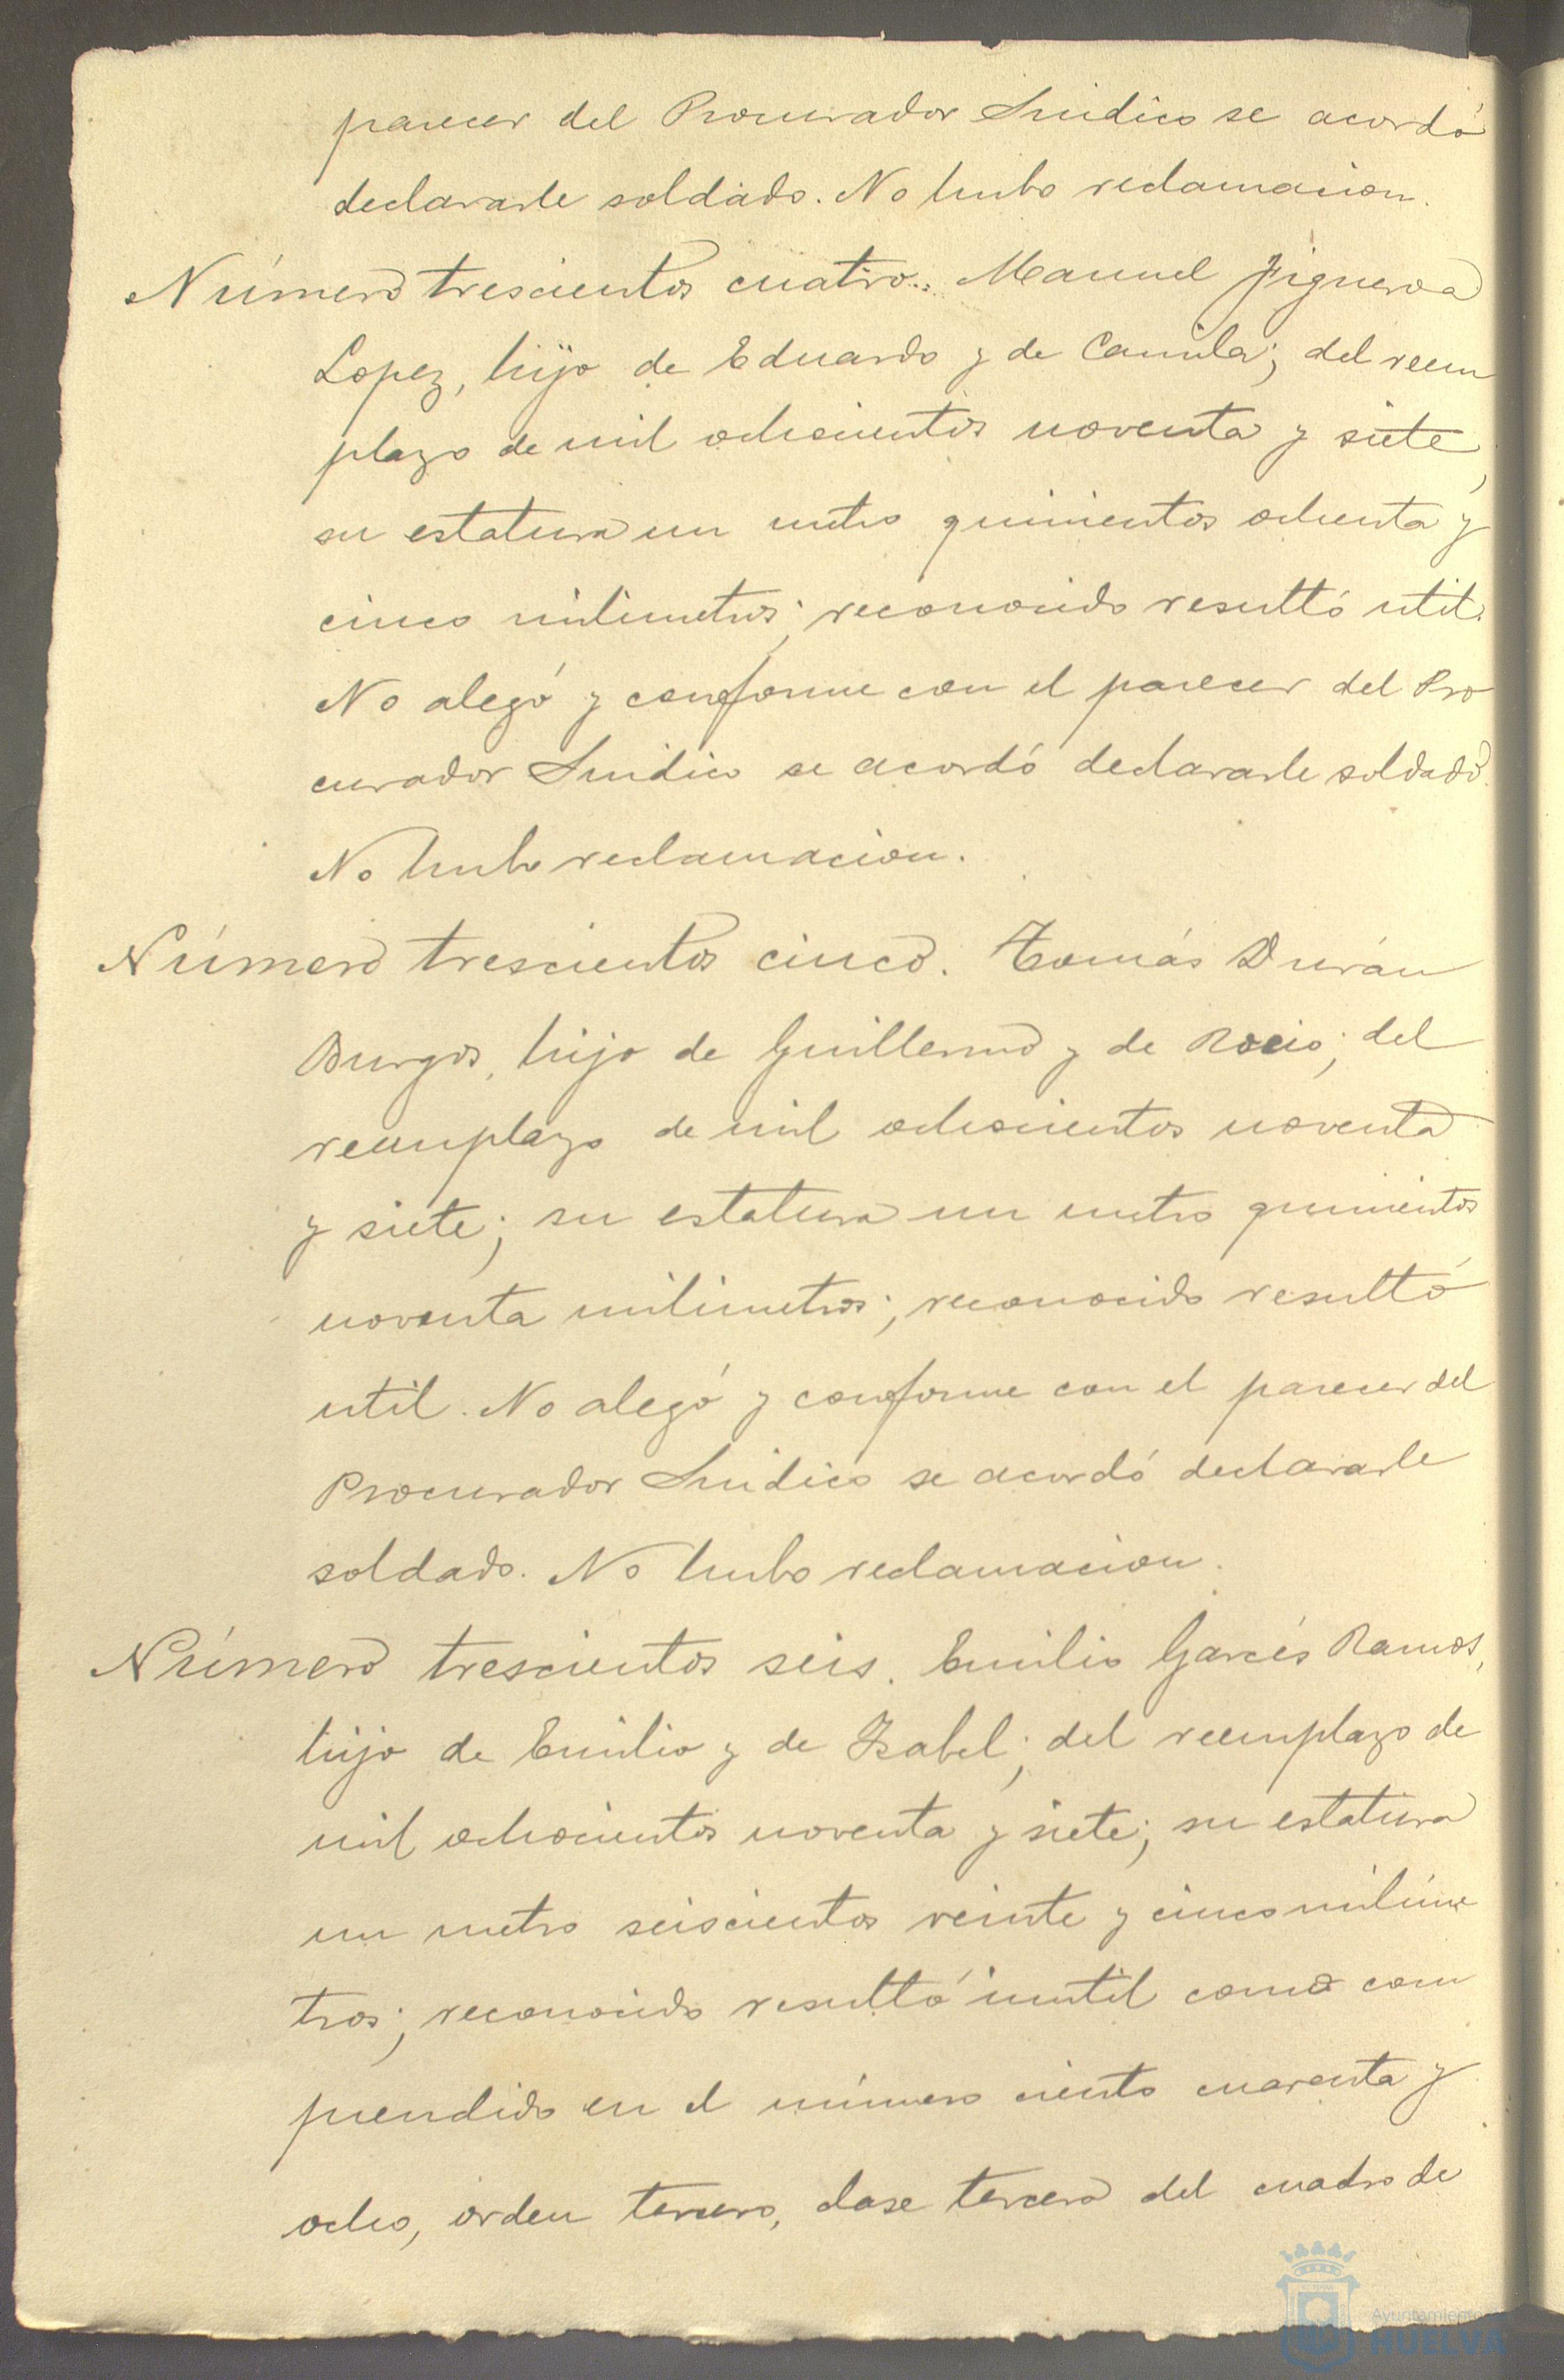 parecer del Procurador Sindico se acordó
declararle soldado. No hubo reclamacion.
Número trescientos cuatro.. Manuel Figueroa
Lopez, hijo de Eduardo y de Camila; del reem
plazo de mil ochocientos noventa y siete,
su estatura un metro quinientos ochenta y
cinco milimetros; reconocido resultó util.
No alegó y conforme con el parecer del Pro
curador Sindico se acordó declararle soldado.
No hubo reclamacion.
Número trescientos cinco. Tomás Durán
Burgos, hijo de Guillermo y de Rocio; del
reemplazo de mil ochocientos noventa
y siete; su estatura un metro quinientos
noventa milimetros; reconocido resultó
util. No alegó y conforme con el parecer del
Procurador Sindico se acordó declararle
soldado. No hubo reclamacion.
Número trescientos seis. Emilio Garcés Ramos,
hijo de Emilio y de Isabel; del reemplazo de
mil ochocientos noventa y siete; su estatura
un metro seiscientos veinte y cinco milíme
tros; reconocido resultó inutil como com
prendido en el número ciento cuarenta y
ocho, orden tercero, clase tercera del cuadro de
Ayuntamiento
HUELVA